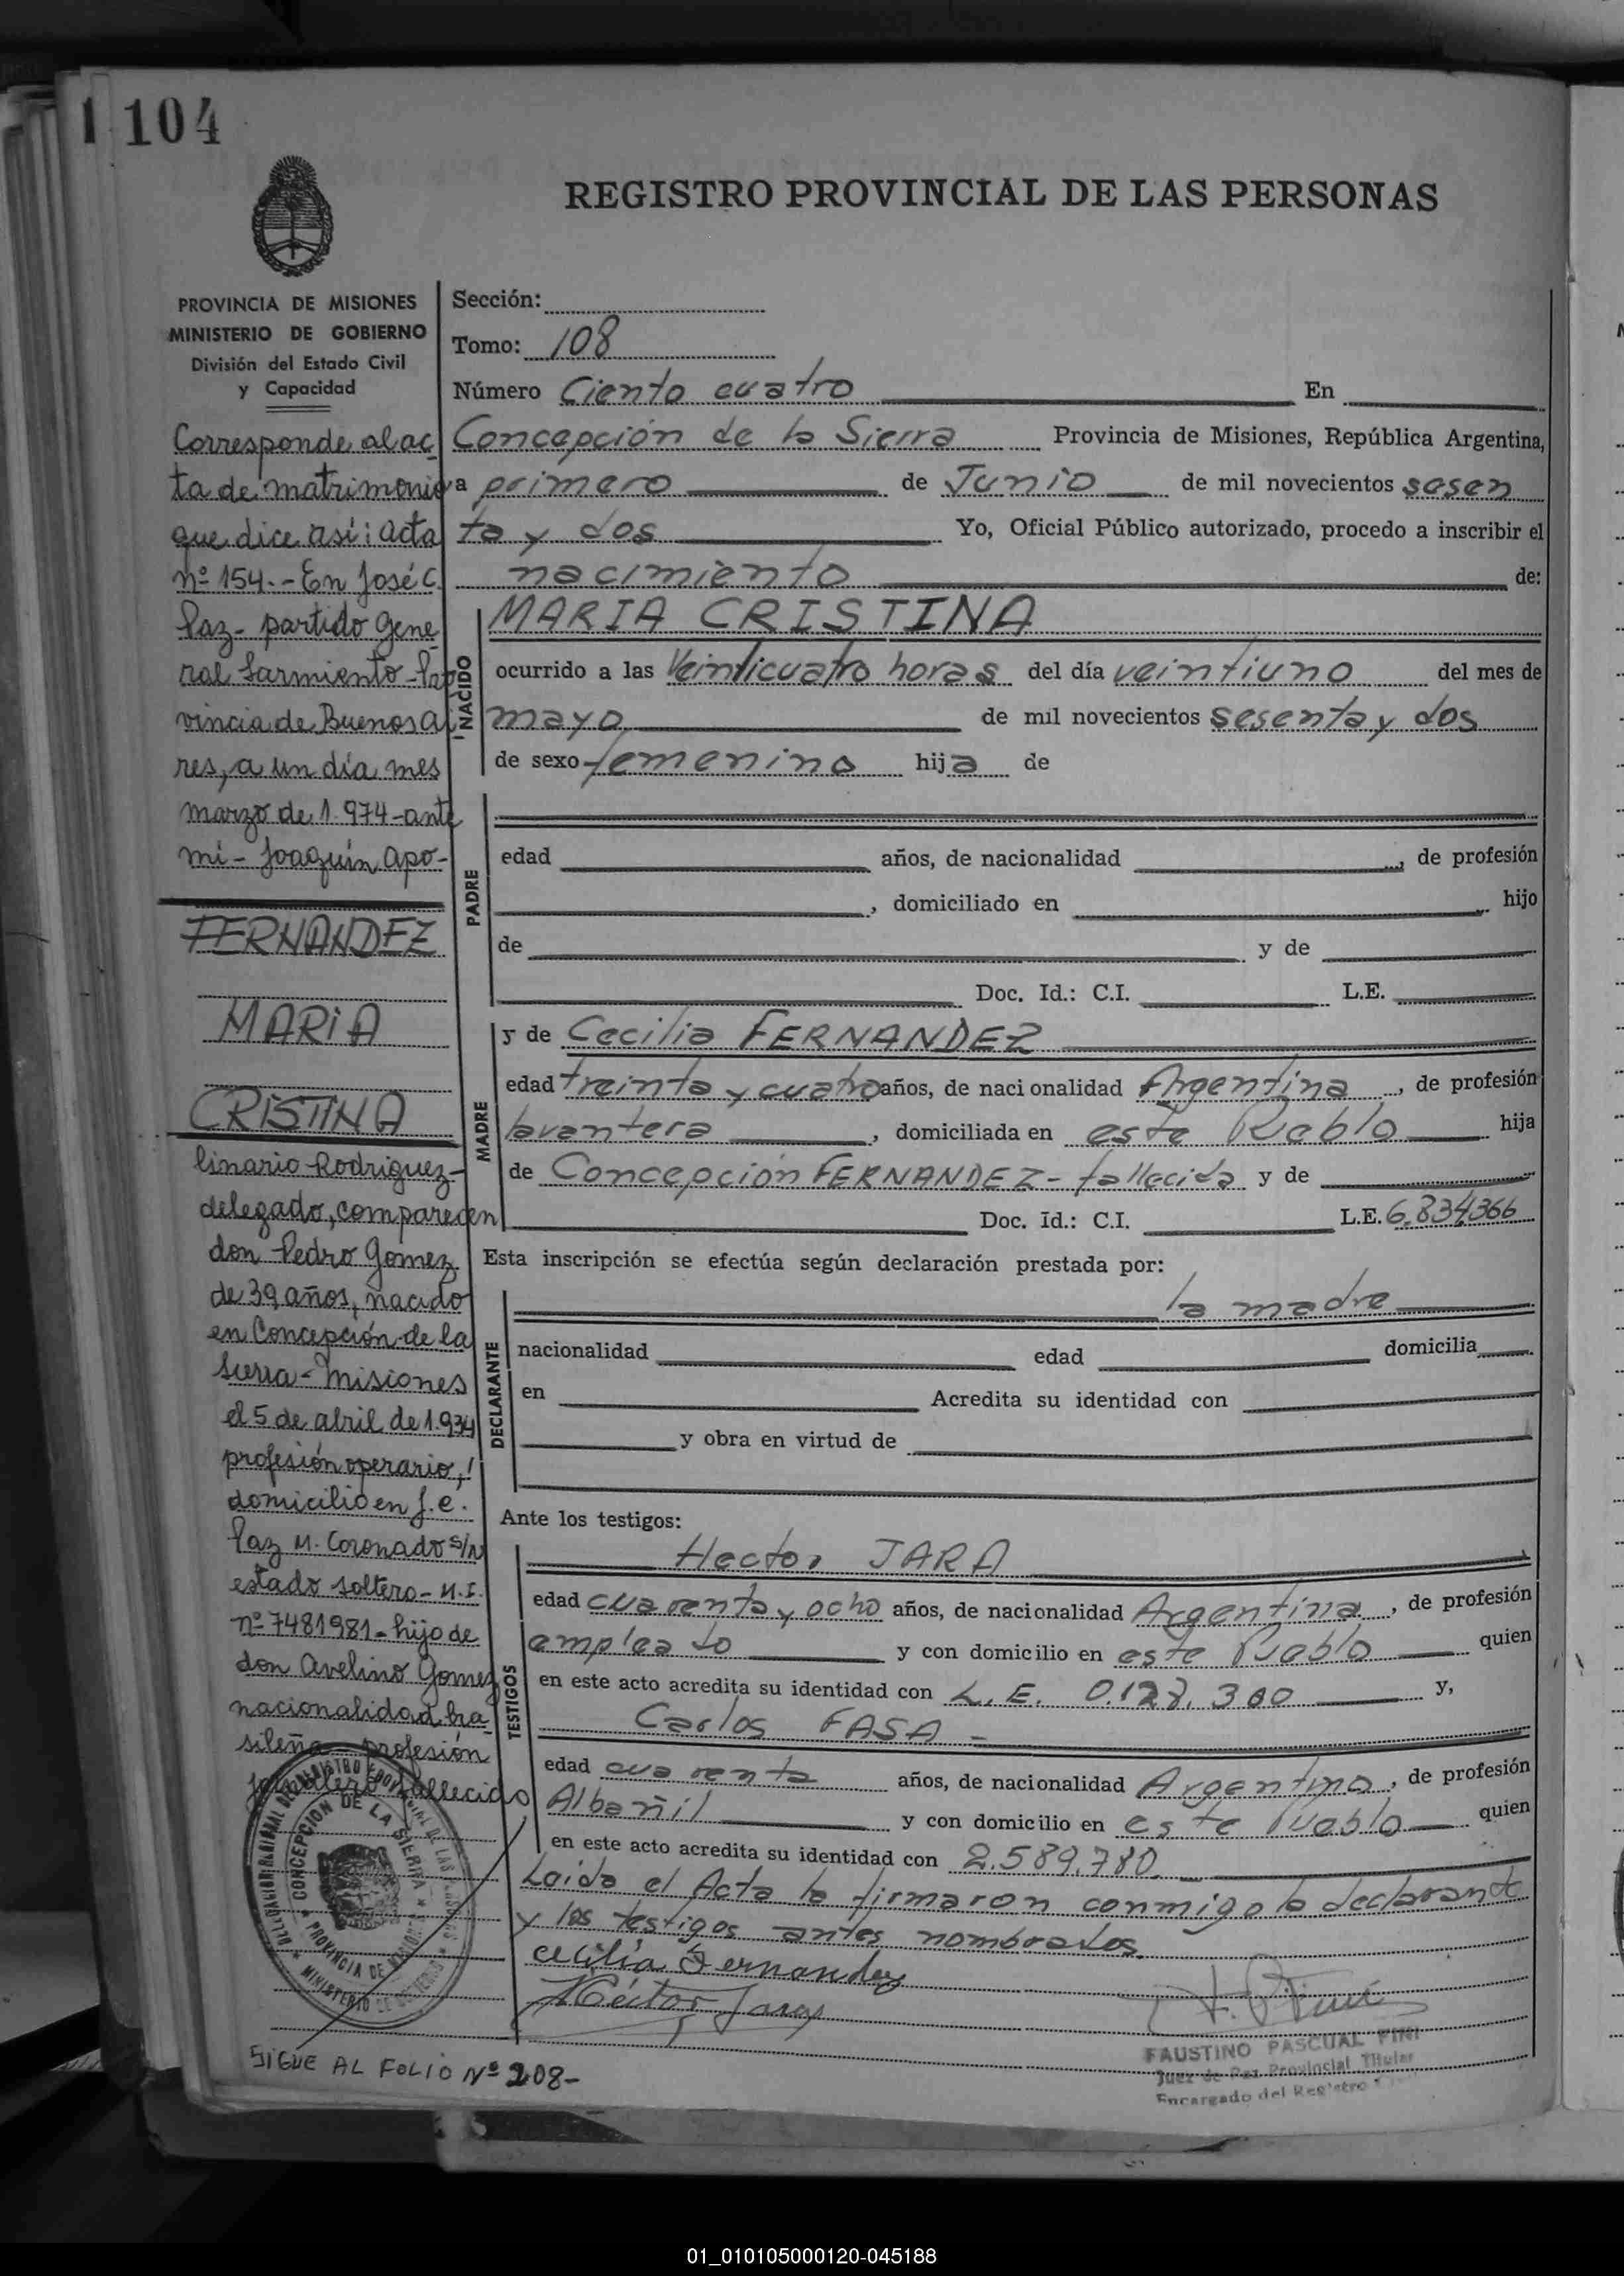 1 104
REGISTRO PROVINCIAL DE LAS PERSONAS
PROVINCIA DE MISIONES
MINISTERIO DE GOBIERNO
División del Estado Civil
y Capacidad
Corresponde al ac
ta de matrimonio
que dice así: acta
nº 154.- En José C.
Paz - partido Gene
ral Sarmiento - Pro
vincia de Buenos Ai
res, a un día mes
marzo de 1.974 - ante
mi - Joaquín Apo-
FERNANDEZ
MARIA
CRISTINA
linario Rodriguez -
delegado, comparecen
don Pedro Gomez
de 39 años, nacido
en Concepción de la
Sierra - Misiones
el 5 de abril de 1.934
profesión operario,
domicilio en J. C.
Paz M. Coronado s/n
estado soltero - M.I.
nº 7481981 - hijo de
don Avelino Gomez
nacionalidad bra
sileña profesión
jornalero fallecido
SIGUE AL FOLIO Nº 208-
Sección:
Tomo: 108
Número Ciento cuatro En
Concepción de la Sierra Provincia de Misiones, República Argentina,
a primero de Junio de mil novecientos sesen
ta y dos Yo, Oficial Público autorizado, procedo a inscribir el
nacimiento de:
NACIDO
MARIA CRISTINA
ocurrido a las Veinticuatro horas del día veintiuno del mes de
mayo de mil novecientos sesenta y dos
de sexo femenino hija de
PADRE
edad años, de nacionalidad , de profesión
, domiciliado en hijo
de y de
Doc. Id.: C.I. L.E.
MADRE
y de Cecilia FERNANDEZ
edad treinta y cuatro años, de nacionalidad Argentina , de profesión
lavantera , domiciliada en este Pueblo hija
de Concepción FERNANDEZ - fallecida y de
Doc. Id.: C.I. L.E. 6.834366
Esta inscripción se efectúa según declaración prestada por:
DECLARANTE
la madre
nacionalidad edad domicilia
en Acredita su identidad con
y obra en virtud de
Ante los testigos:
TESTIGOS
Hector JARA
edad cuarenta y ocho años, de nacionalidad Argentina , de profesión
empleado y con domicilio en este Pueblo quien
en este acto acredita su identidad con L.E. 0.128.300 y,
Carlos FASA -
edad cuarenta años, de nacionalidad Argentina , de profesión
Albañil y con domicilio en este Pueblo quien
en este acto acredita su identidad con 2.589.780
Leida el Acta la firmaron conmigo la declarante
y los testigos antes nombrados.
Cecilia Fernandez
Héctor Jara
CONCEPCION DE LA SIERRA
PROVINCIA DE MISIONES
FAUSTINO PASCUAL PINI
Juez de Paz Provincial Titular
Encargado del Registro
01_010105000120-045188